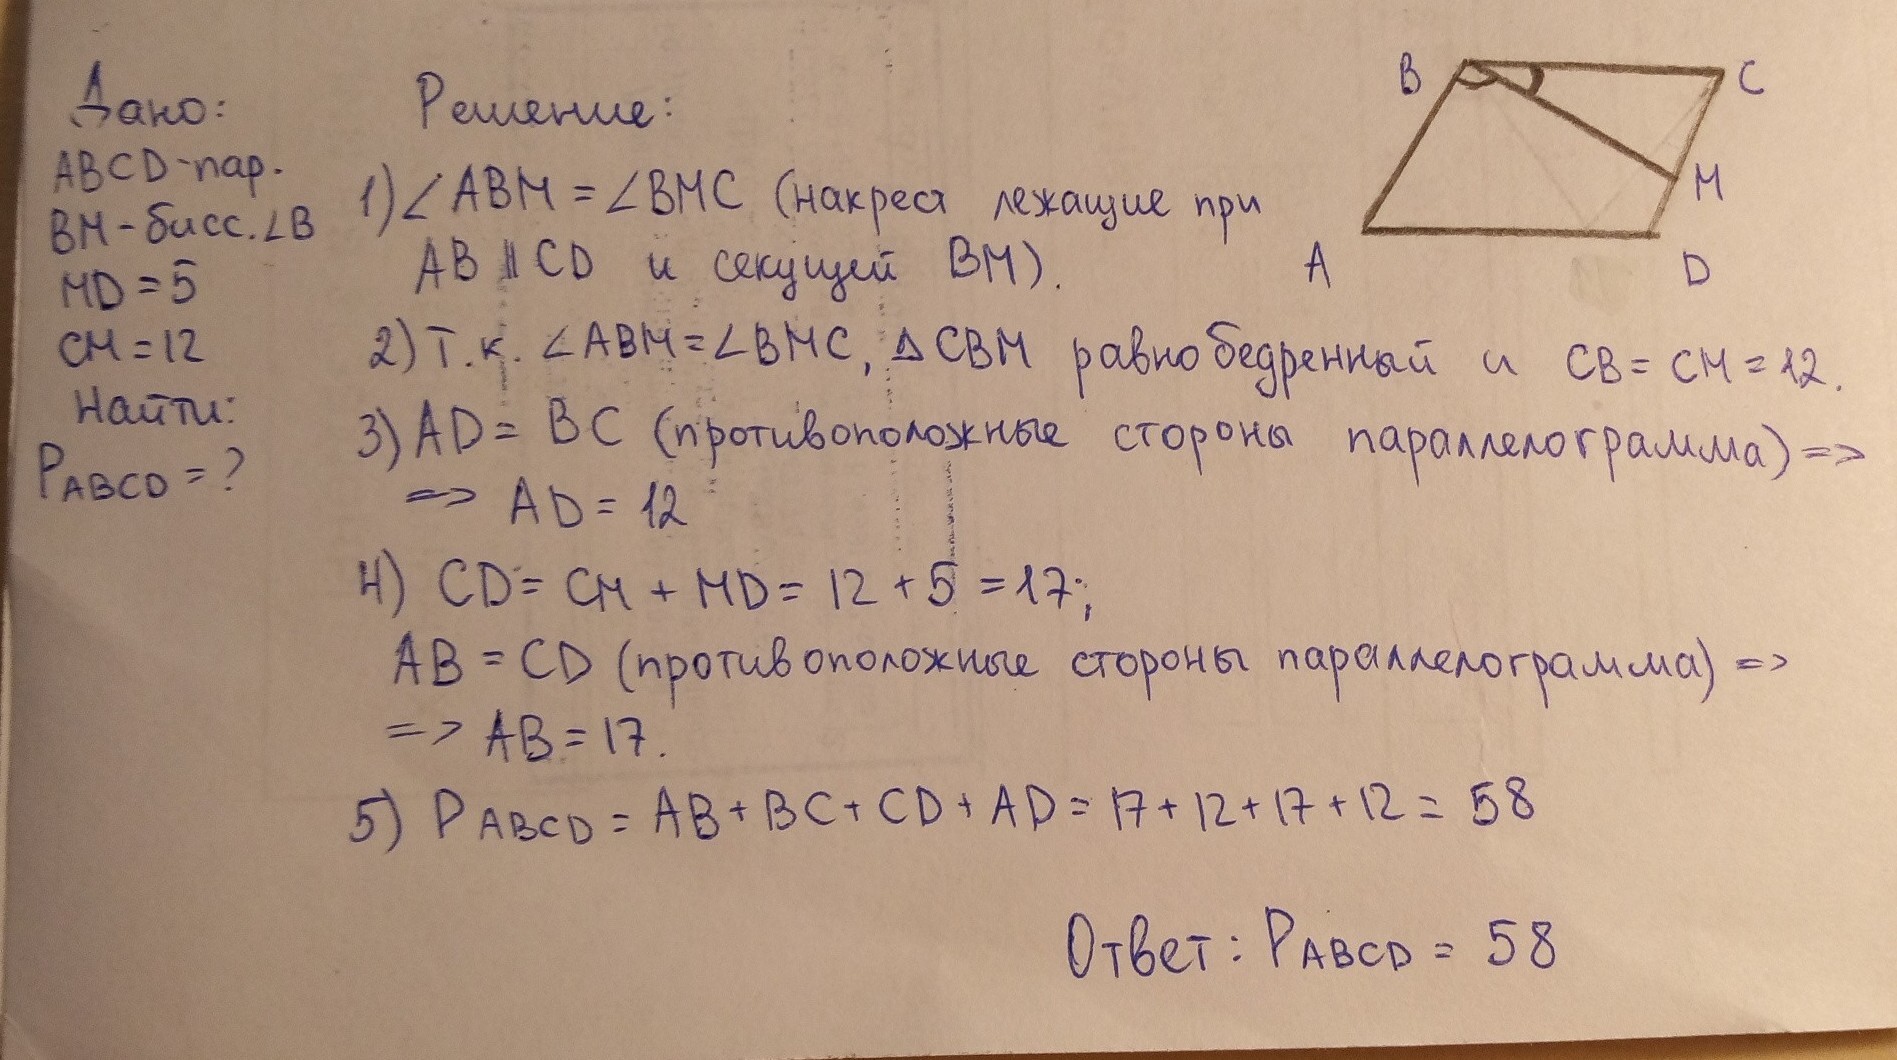 Дано:
ABCD-пар.
BM-бисс.∠B
MD=5
CM=12
Найти:
PABCD=?
Решение:
1)∠ABM=∠BMC (накрест лежащие при
AB ∥ CD и секущей BM).
2) Т.к. ∠ABM=∠BMC, △CBM равнобедренный и CB=CM=12.
3) AD=BC (противоположные стороны параллелограмма)=>
=> AD=12
4) CD=CM+MD=12+5=17;
AB=CD (противоположные стороны параллелограмма)=>
=> AB=17.
5) PABCD=AB+BC+CD+AD=17+12+17+12=58
Ответ: PABCD=58
B
C
M
A
D